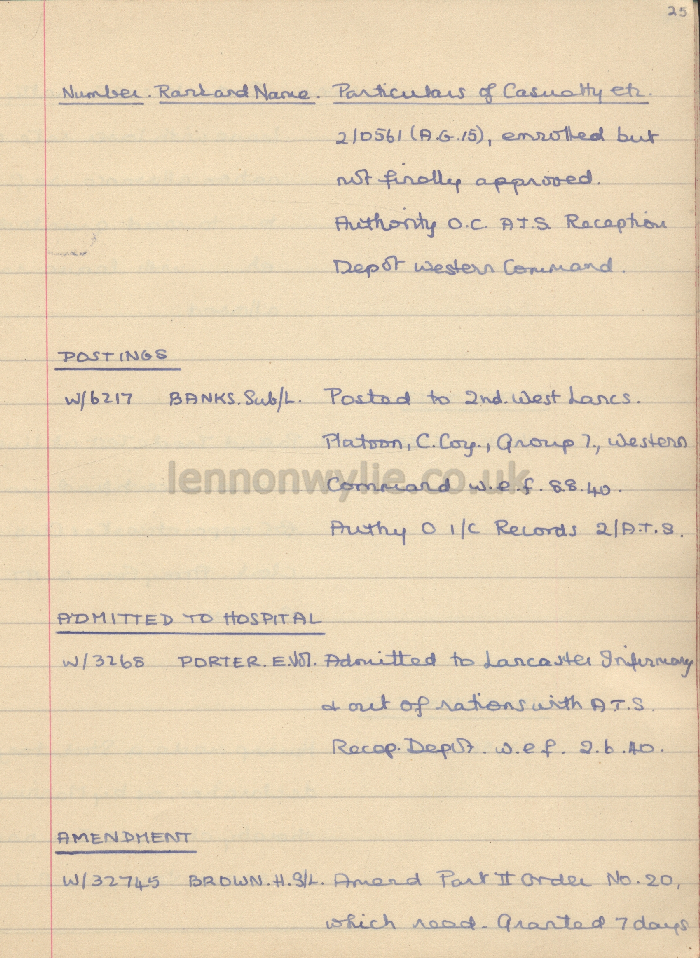 25
Number. Rank and Name. Particulars of Casualty etc.
2/0561 (A.G.15), enrolled but
not finally approved.
Authority O.C. A.T.S. Reception
Depôt Western Command.
POSTINGS
W/6217 BANKS. Sub/L. Posted to 2nd. West Lancs.
Platoon, C. Coy., Group 7., Western
lennonwylie.co.uk
Command w.e.f. 8.8.40.
Authy O I/C Records 2/A.T.S.
ADMITTED TO HOSPITAL
W/3268 PORTER. E. Vol. Admitted to Lancaster Infirmary
& out of rations with A.T.S.
Recep. Depôt. w.e.f. 2.6.40.
AMENDMENT
W/32745 BROWN. H. S/L. Amend Part II Order No. 20,
which read - Granted 7 days